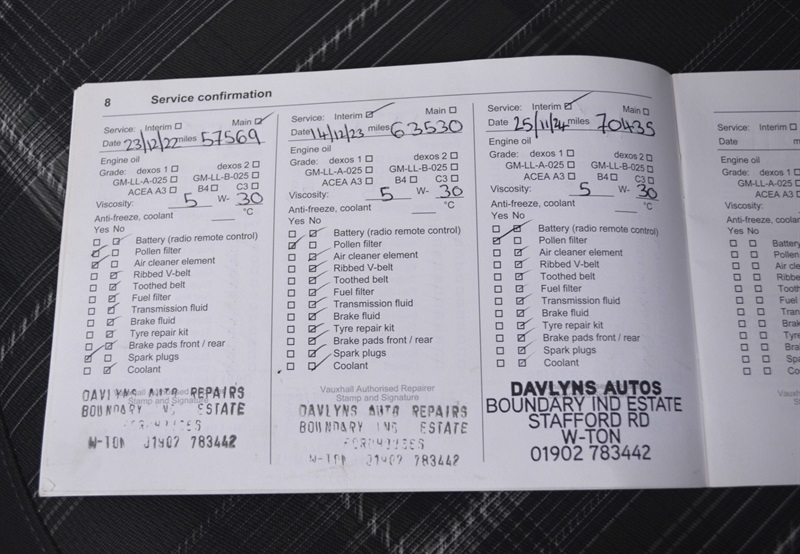 8 Service confirmation
Service: Interim Main
Date 23/12/22 miles 57569
Engine oil
Grade: dexos 1 dexos 2
GM-LL-A-025 GM-LL-B-025
ACEA A3 B4 C3
Viscosity: 5 W- 30
Anti-freeze, coolant °C
Yes No
Battery (radio remote control)
Pollen filter
Air cleaner element
Ribbed V-belt
Toothed belt
Fuel filter
Transmission fluid
Brake fluid
Tyre repair kit
Brake pads front / rear
Spark plugs
Coolant
Vauxhall Authorised Repairer
Stamp and Signature
DAVLYNS AUTO REPAIRS
BOUNDARY ESTATE
W-TON 01902 783442
Service: Interim Main
Date 14/12/23 miles 63530
Engine oil
Grade: dexos 1 dexos 2
GM-LL-A-025 GM-LL-B-025
ACEA A3 B4 C3
Viscosity: 5 W- 30
Anti-freeze, coolant °C
Yes No
Battery (radio remote control)
Pollen filter
Air cleaner element
Ribbed V-belt
Toothed belt
Fuel filter
Transmission fluid
Brake fluid
Tyre repair kit
Brake pads front / rear
Spark plugs
Coolant
Vauxhall Authorised Repairer
Stamp and Signature
DAVLYNS AUTO REPAIRS
BOUNDARY IND ESTATE
W-TON 01902 783442
Service: Interim Main
Date 25/11/24 miles 70435
Engine oil
Grade: dexos 1 dexos 2
GM-LL-A-025 GM-LL-B-025
ACEA A3 B4 C3
Viscosity: 5 W- 30
Anti-freeze, coolant °C
Yes No
Battery (radio remote control)
Pollen filter
Air cleaner element
Ribbed V-belt
Toothed belt
Fuel filter
Transmission fluid
Brake fluid
Tyre repair kit
Brake pads front / rear
Spark plugs
Coolant
DAVLYNS AUTOS
BOUNDARY IND ESTATE
STAFFORD RD
W-TON
01902 783442
Service: Interim
Date
Engine oil
Grade: dexos 1
GM-LL-A-025
ACEA A3
Viscosity:
Anti-freeze, coolant
Yes No
Battery
Pollen
Air
Ribbed